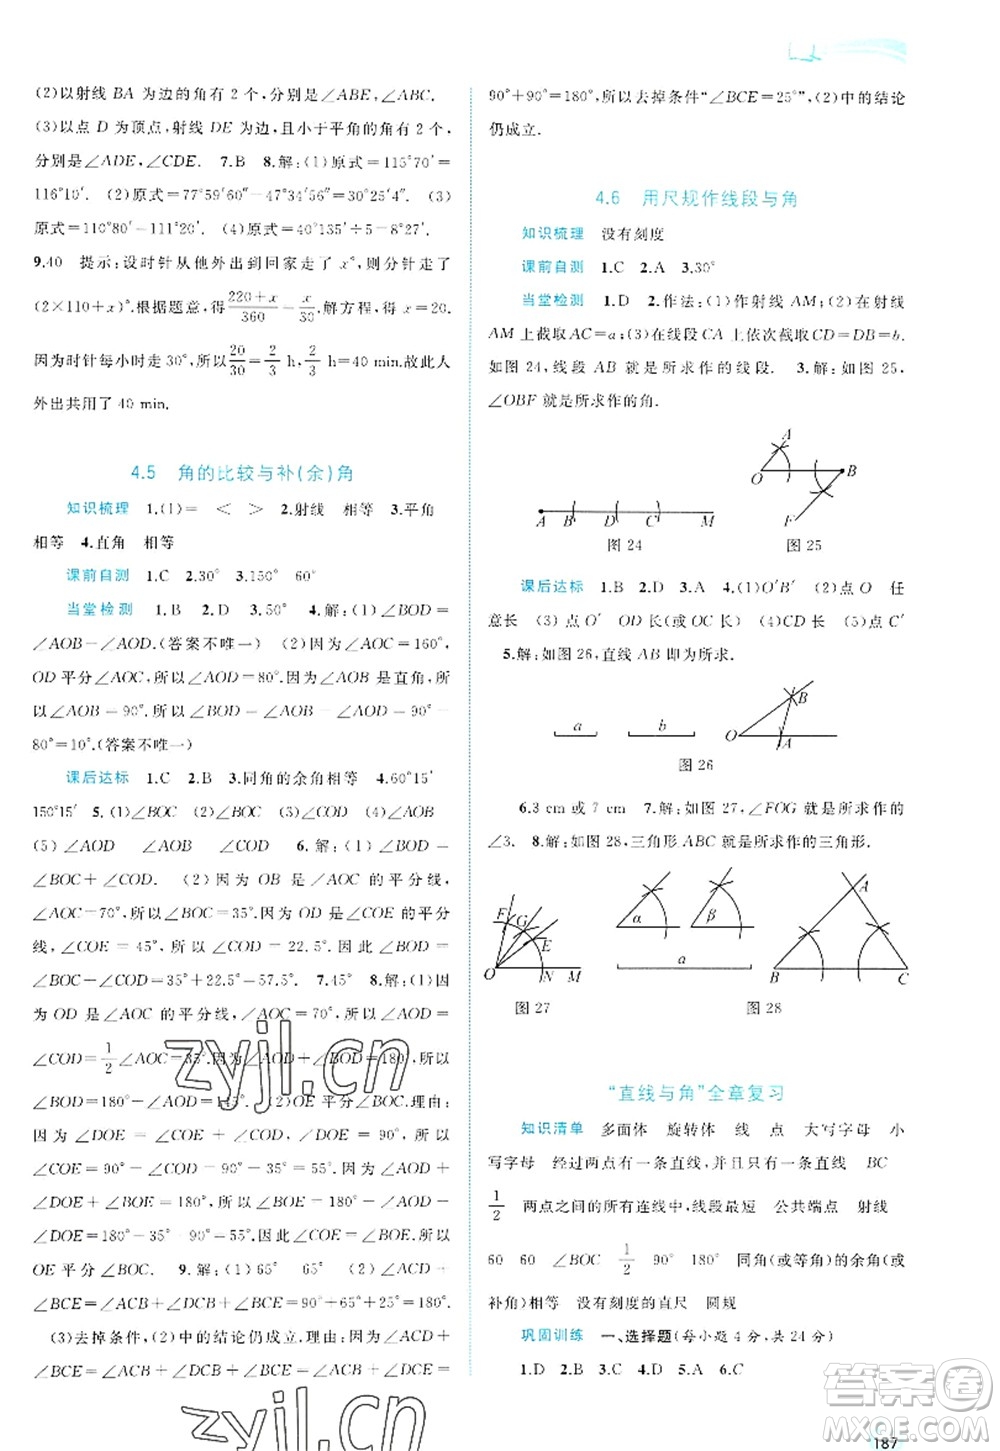 (2)以射线 BA 为边的角有 2 个,分别是∠ABE,∠ABC.
(3)以点 D 为顶点,射线 DE 为边,且小于平角的角有 2 个,
分别是∠ADE,∠CDE. 7.B 8.解:(1)原式=115°70′=
116°10′. (2)原式=77°59′60″-47°34′56″=30°25′4″. (3)
原式=110°80′-91°37′=19°43′. (4)原式=150°340′÷5=31°8′.
9.40 提示:设时针从他外出到回家走了 x°,则分针走了
(2×110+x)°,根据题意,得 220+x/360=x/30,解方程,得 x=20.
因为时针每小时走 30°,所以 20/30=2/3 h,2/3 h=40 min.故此人
外出共用了 40 min.
4.5 角的比较与补(余)角
知识梳理 1.(1)= < > 2.射线 相等 3.平角
相等 4.直角 相等
课前自测 1.C 2.30° 3.150° 60°
当堂检测 1.B 2.B 3.50° 4.解:(1)∠BOD=
∠AOB-∠AOD.(答案不唯一) (2)因为∠AOC=160°,
OD 平分∠AOC,所以∠AOD=80°.因为∠AOB 是直角,所
以∠AOB=90°.所以∠BOD=∠AOB-∠AOD=90°-
80°=10°.(答案不唯一)
课后达标 1.C 2.B 3.同角的余角相等 4.60°15′
150°15′ 5.(1)∠BOC (2)∠BOC (3)∠AOC (4)∠AOB
(5)∠AOD ∠AOD ∠AOD 6.解:(1)∠COD=
∠BOC+∠COE. (2)因为 OB 是∠AOC 的平分线,
∠AOC=70°,所以∠BOC=35°.因为 OD 是∠COE 的平分
线,∠COE=45°,所以∠COD=22.5°.因此∠BOD=
∠BOC+∠COD=35°+22.5°=57.5°. 7.45° 8.解:(1)因
为 OD 是∠AOC 的平分线,∠AOC=70°,所以∠AOD=
∠COD=1/2∠AOC=35°.因为∠AOD+∠BOD=180°,所以
∠BOD=180°-∠AOD=145°. (2)OE 平分∠BOC.理由:
因为∠DOE=90°,所以∠COD+∠COE=90°.所以
∠COE=90°-∠COD=90°-35°=55°.因为∠AOD+
∠DOE+∠BOE=180°,所以∠BOE=180°-∠AOD-
∠DOE=180°-35°-90°=55°.所以∠COE=∠BOE.所以
OE 平分∠BOC. 9.解:(1)65° 65° (2)∠ACD+
∠BCE=∠ACB+∠DCB+∠BCE=90°+65°+25°=180°.
(3)去掉条件,(2)中的结论仍成立.理由:因为∠ACD+
∠BCE=∠ACB+∠DCB+∠BCE=∠ACB+∠DCE=
90°+90°=180°,所以去掉条件“∠BCE=25°”,(2)中的结论
仍成立.
4.6 用尺规作线段与角
知识梳理 没有刻度
课前自测 1.C 2.A 3.30°
当堂检测 1.D 2.作法:(1)作射线 AM;(2)在射线
AM 上截取 AC=a;(3)在线段 CA 上依次截取 CD=DB=b.
如图 24,线段 AB 就是所求作的线段. 3.解:如图 25,
∠OBF 就是所求作的角.
A B D C M
图 24
A O B F
图 25
课后达标 1.B 2.B 3.A 4.(1)O′B′ (2)点 O 任
意长 (3)点 O′ OC(或 OC)的长 (4)点 C′ CD
5.解:如图 26,直线 AB 即为所求.
a b O A B
图 26
6.3 cm 或 7 cm 7.解:如图 27,∠FOG 就是所求作的
∠3. 8.解:如图 28,三角形 ABC 就是所求作的三角形.
F G E O N M
图 27
α β a A B C
图 28
“直线与角”全章复习
知识清单 多面体 旋转体 线 点 大写字母 小
写字母 经过两点有一条直线,并且只有一条直线 BC
1/2 两点之间的所有连线中,线段最短 公共端点 射线
60 60 ∠BOC 1/2 90° 180° 同角(或等角)的余角(或
补角)相等 没有刻度的直尺 圆规
巩固训练 一、选择题(每小题 4 分,共 24 分)
1.D 2.B 3.C 4.D 5.A 6.C
zyjl.cn
zyjl.cn
答案圈
MXQE.COM
187